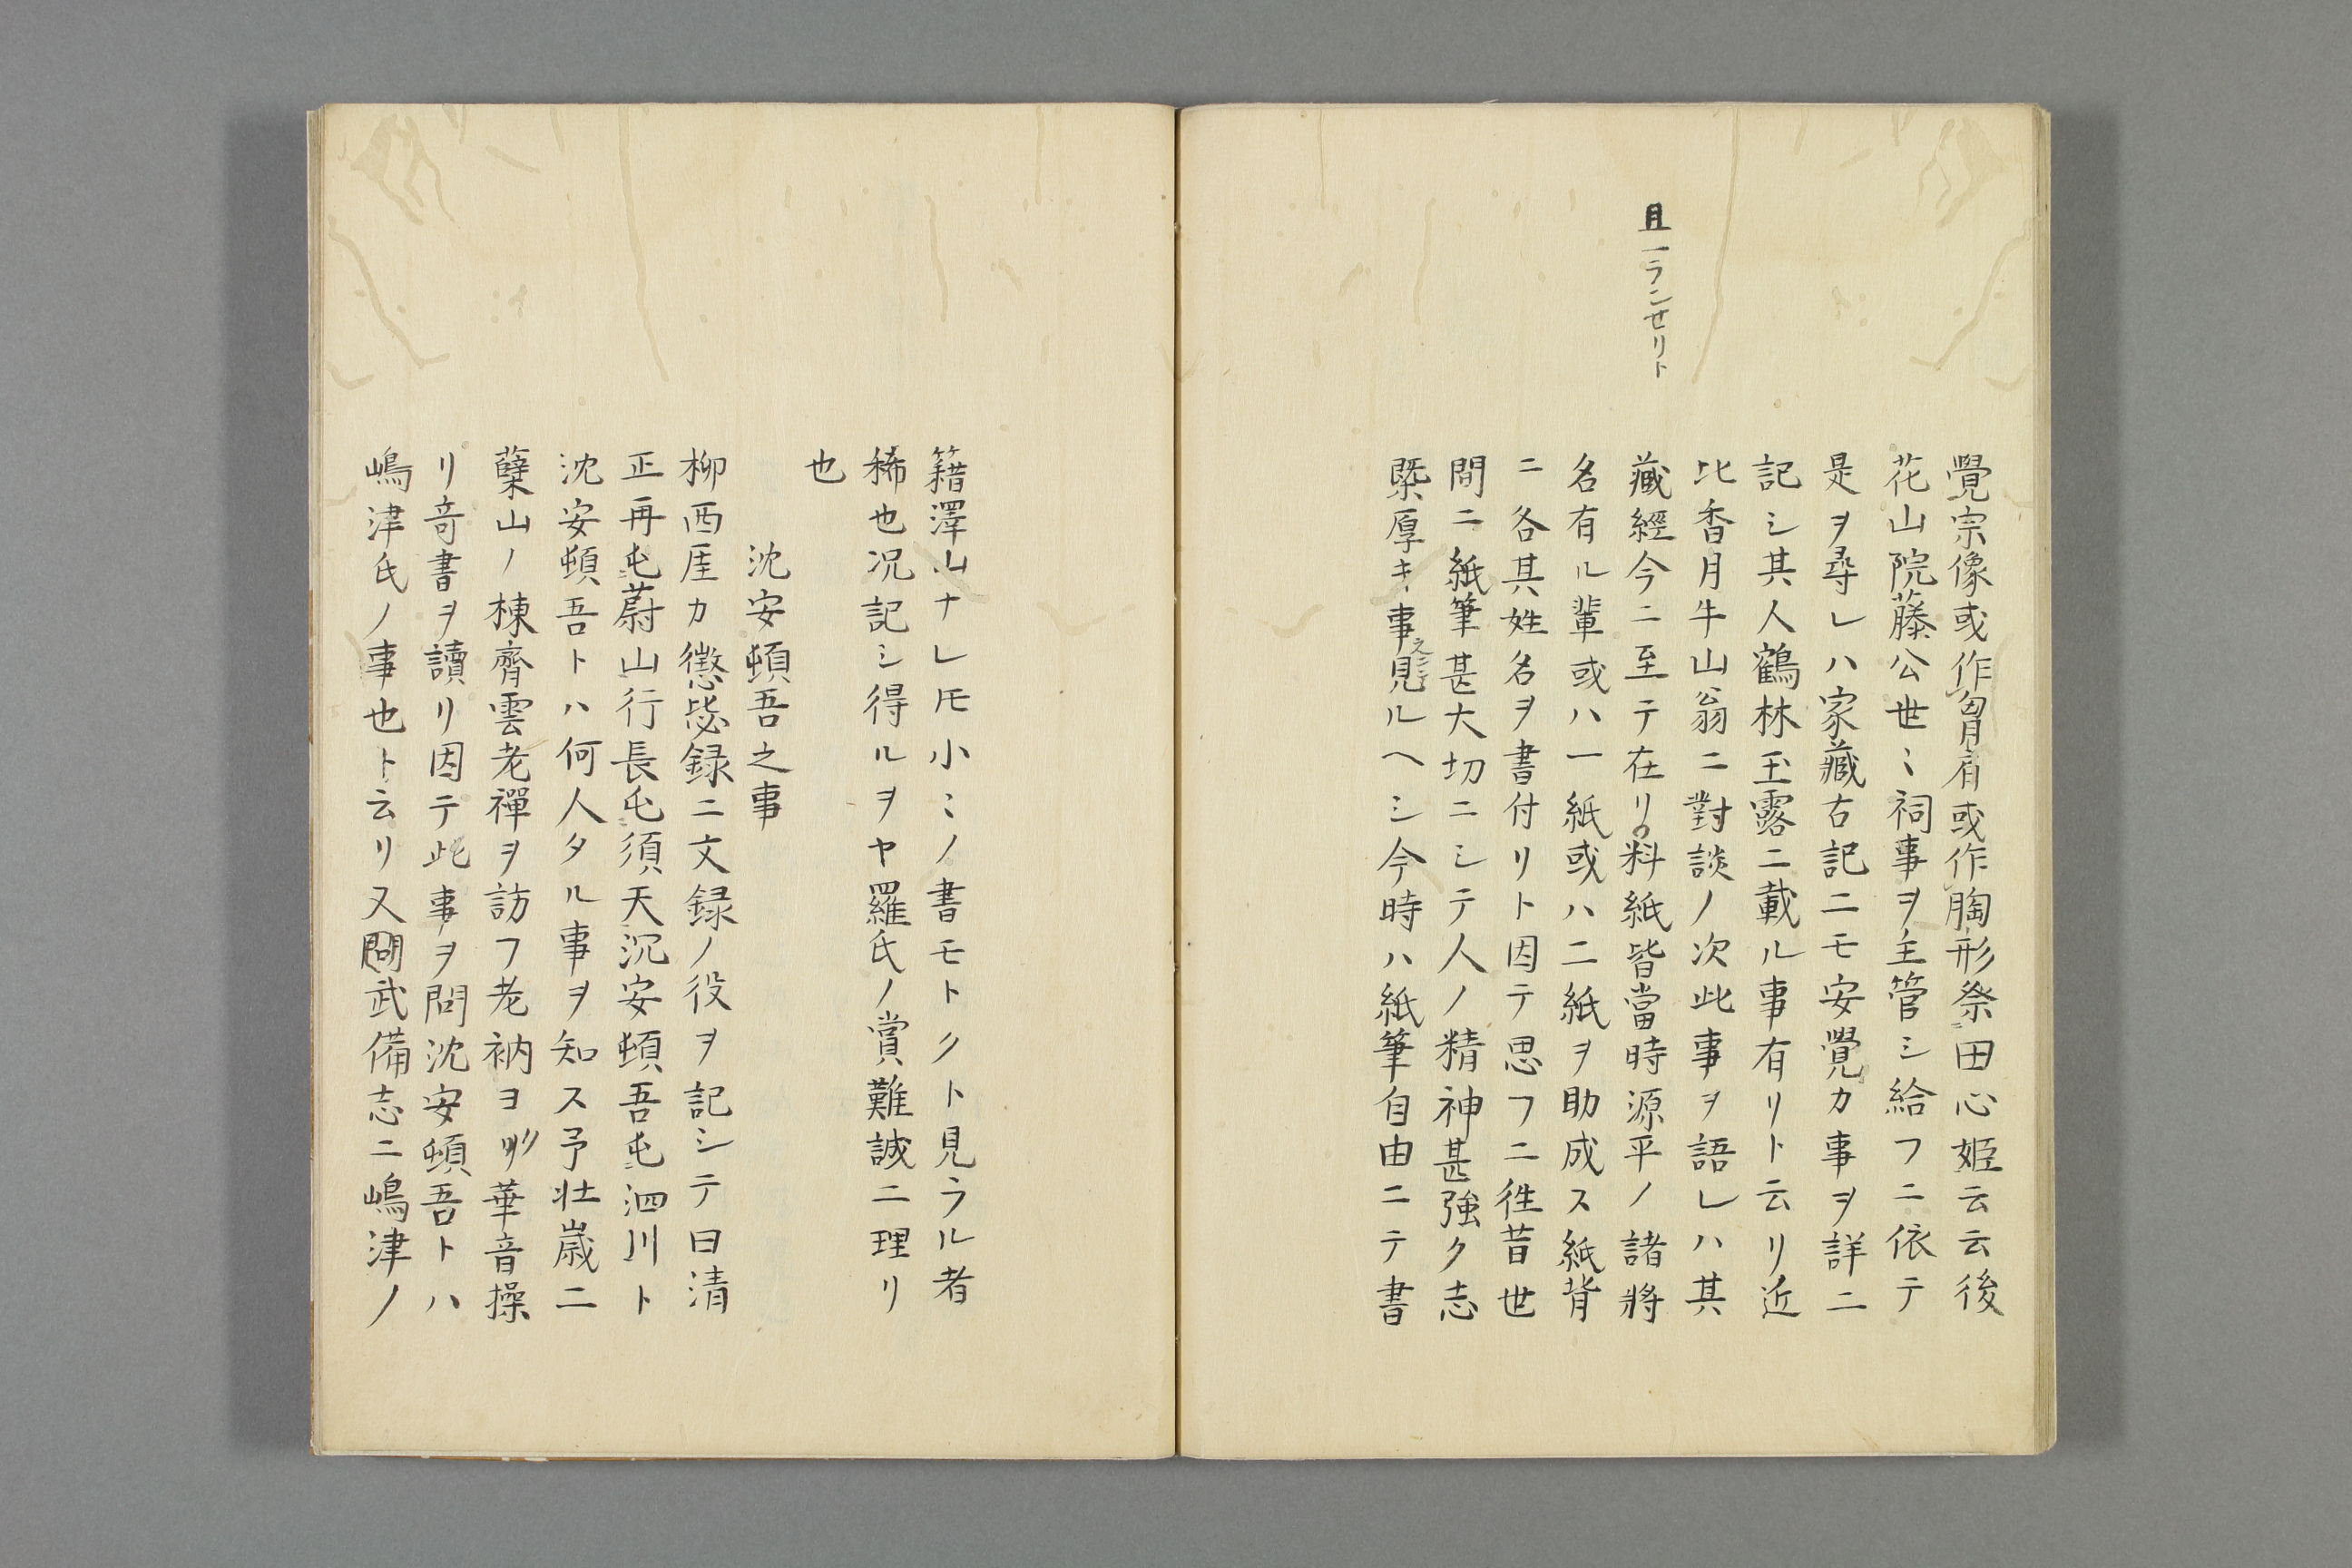 且一ランセリト
覺宗像或作胷肩或作胸形祭田心姫云云後
花山院藤公世〻祠事ヲ主管シ給フニ依テ
是ヲ尋レハ家藏古記ニモ安覺カ事ヲ詳ニ
記シ其人鶴林玉露ニ載ル事有リト云リ近
比香月牛山翁ニ對談ノ次此事ヲ語レハ其
藏經今ニ至テ在リ料紙皆當時源平ノ諸將
名有ル輩或ハ一紙或ハ二紙ヲ助成ス紙背
ニ各其姓名ヲ書付リト因テ思フニ徃昔世
間ニ紙筆甚大切ニシテ人ノ精神甚強ク志
槩厚キ事見ルヘシ今時ハ紙筆自由ニテ書
籍澤山ナレ𪜈小〻ノ書モトクト見ラル者
稀也况記シ得ルヲヤ羅氏ノ賞難誠ニ理リ
也
沈安頓吾之事
柳西厓カ懲毖録ニ文録ノ役ヲ記シテ曰清
正再屯蔚山行長屯須天沉安頓吾屯泗川ト
沈安頓吾トハ何人タル事ヲ知ス予壮歳ニ
蘖山ノ棟齊雲老禪ヲ訪フ老衲ヨ華音操
リ竒書ヲ讀リ因テ此事ヲ問沈安頓吾トハ
嶋津氏ノ事也ト云リ又閲武備志ニ嶋津ノ